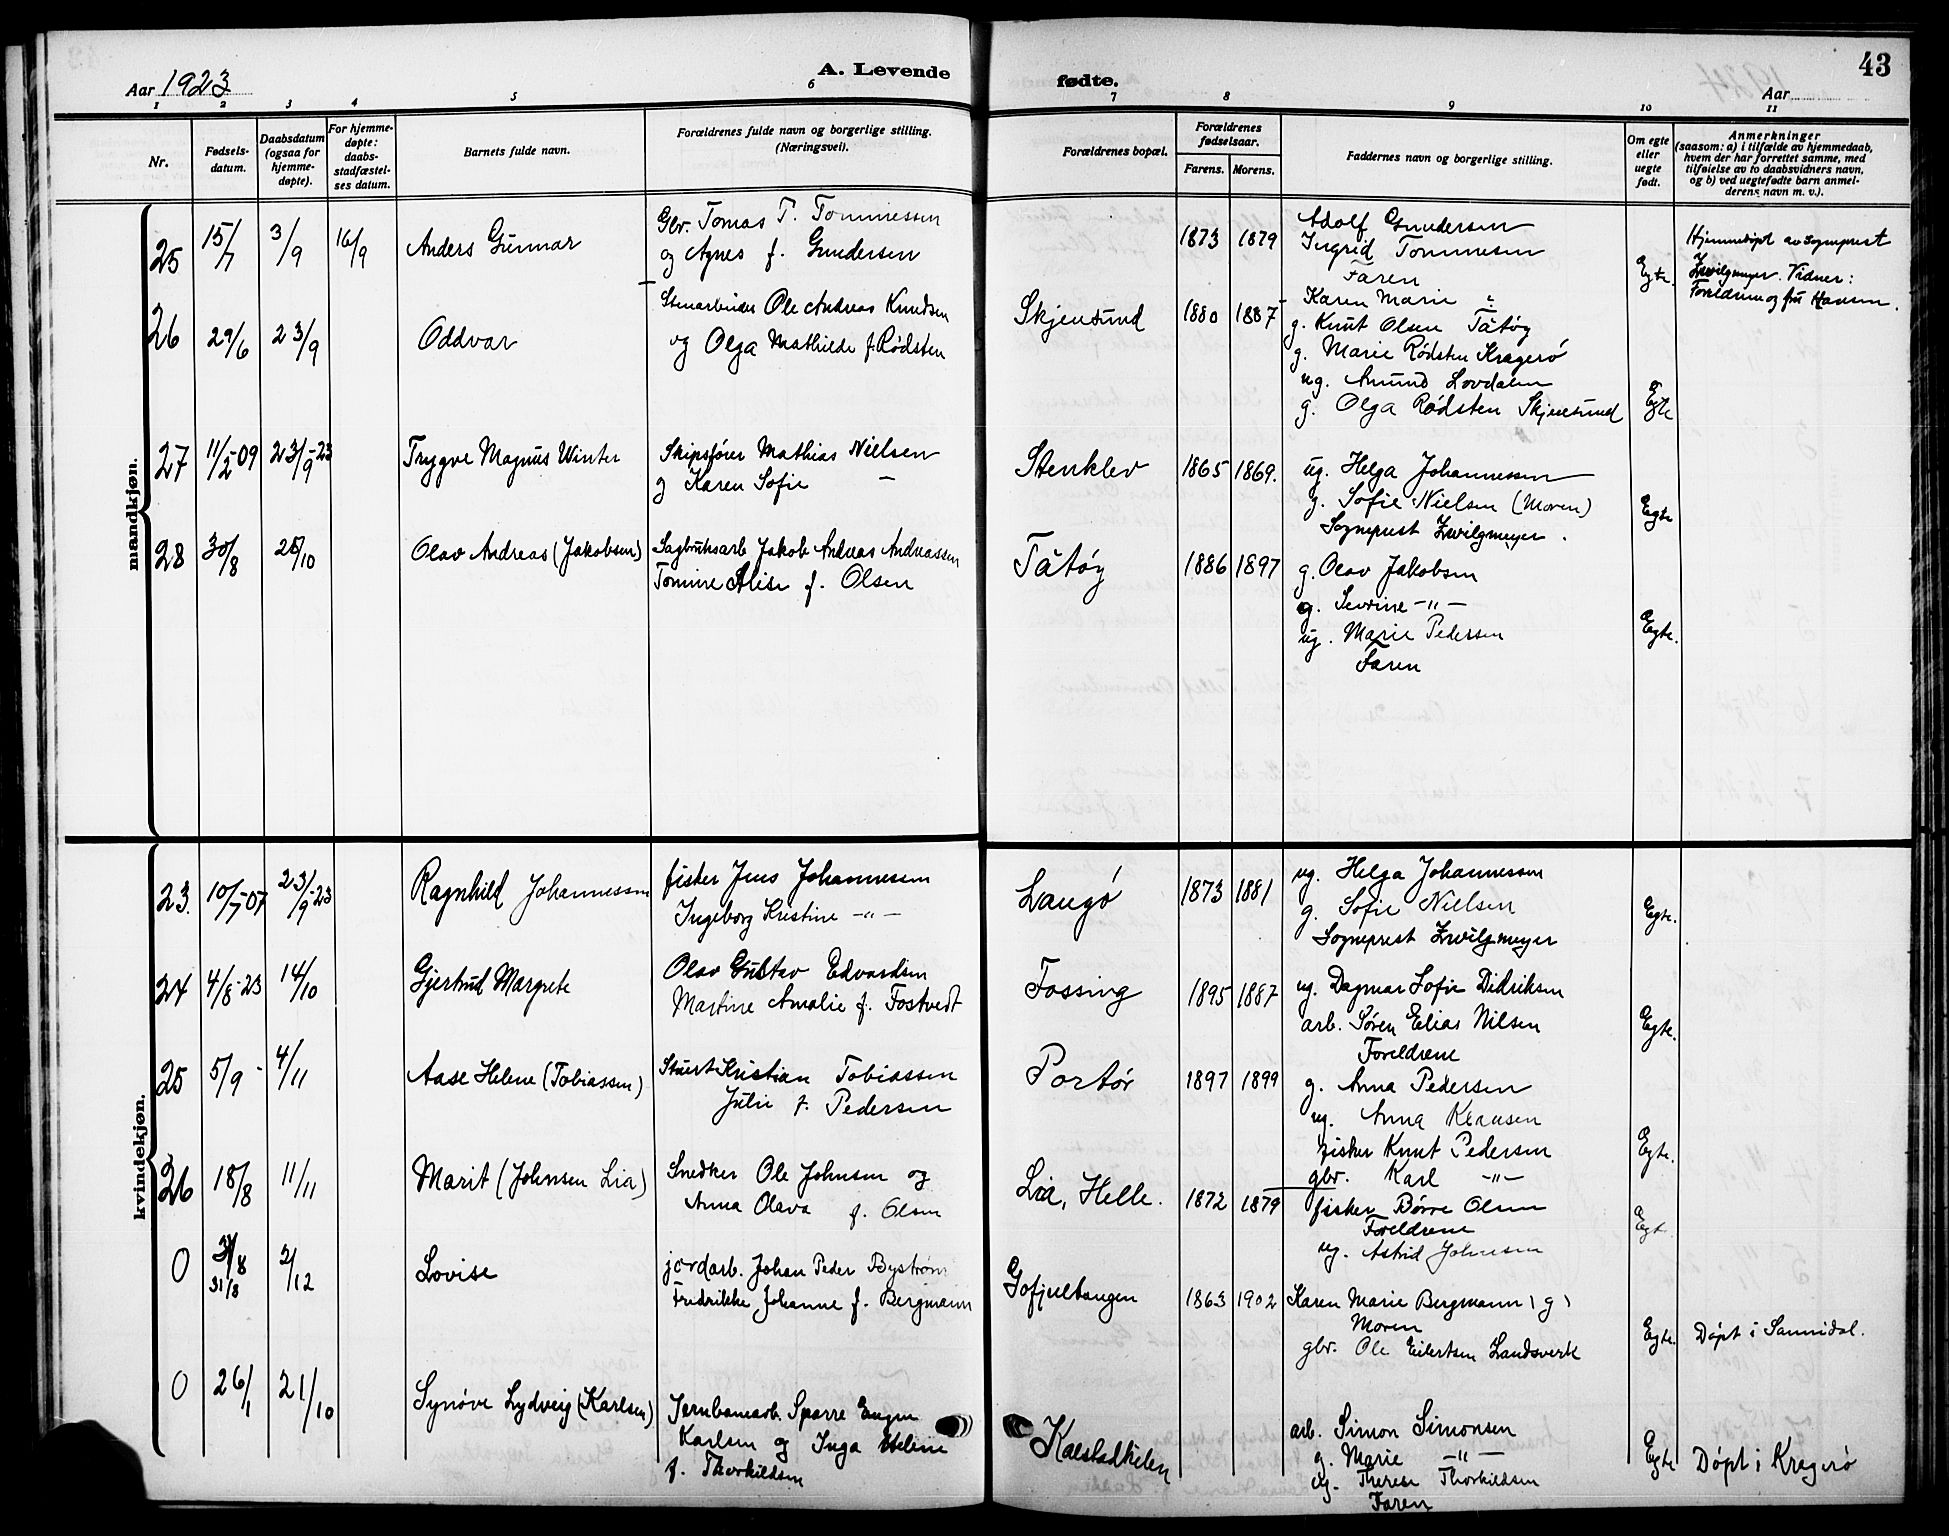 Aar 1923
A. Levende
fødte.
43
Aar
1 2 3 4 5 6 7 8 9 10 11
Nr.
Fødsels-
datum.
Daabsdatum
(ogsaa for
hjemme-
døpte).
For hjemme-
døpte:
daabs-
stadfæstel-
ses datum.
Barnets fulde navn.
Forældrenes fulde navn og borgerlige stilling.
(Næringsvei).
Forældrenes bopæl.
Forældrenes
fødselsaar.
Farens. Morens.
Faddernes navn og borgerlige stilling.
Om egte
eller
uegte
født.
Anmerkninger
(saasom: a) i tilfælde av hjemmedaab,
hvem der har forrettet samme, med
tilføielse av to daabsvidners navn,
og b) ved uegtefødte barn anmel-
derens navn m. v.).
mandkjøn.
25 15/7 3/9 16/9 Anders Gunnar
Gbr. Tomas T. Tommessen
og Agnes f. Gundersen
1873 1879
Adolf Gundersen
Ingrid Tommesen
Faren
Egte.
Hjemmedøpt av sogneprest
Zwilgmeyer. Vidner:
Foreldrene og fru Hansen.
26 29/6 23/9 Oddvar
Stenarbeider Ole Andreas Knudsen
og Olga Mathilde f. Rødsten
Skjensund 1880 1887
Karen Marie
g. Knut Olsen Tåtøy
g. Marie Rødsten Kragerø
ug. Amund Lovdalen
g. Olga Rødsten Skjensund
Egte
27 11/2-09 23/9-23 Trygve Magnus Winter
Skipsfører Mathias Nielsen
og Karen Sofie —
Stenklev 1865 1869.
ug. Helga Johannessen
g. Sofie Nielsen (Moren)
Sogneprest Zwilgmeyer.
Egte
28 30/8 28/10 Olav Andreas (Jakobsen)
Sagbruksarb. Jakob Andreas Andreassen
Tomine Alise f. Olsen
Tåtøy 1886 1897
g. Olav Jakobsen
g. Sevrine -"-
ug. Marie Pedersen
Faren
Egte.
kvindekjøn.
23. 10/7-07 23/9-23 Ragnhild Johannessen
fisker Jens Johannessen
Ingeborg Kristine -"-
Langø 1873 1881
ug. Helga Johannessen
g. Sofie Nielsen
Sogneprest Zwilgmeyer
Egte.
24 4/8-23 14/10 Gjertrud Margrete
Olav Gustav Edvardsen
Martine Amalie f. Fostvedt
Fossing 1895 1887
ug. Dagmar Sofie Didriksen
arb. Søren Elias Nilsen
Foreldrene
Egte.
25 5/9 4/11 Aase Helene (Tobiassen)
Stuert Kristian Tobiassen
Julie f. Pedersen
Portør 1897 1899
g. Anna Pedersen
ug. Anna Klausen
fisker Knut Pedersen
gbr. Karl -"-
Egte.
26 18/8 11/11 Marit (Johnsen Lia)
Snedker Ole Johnsen og
Anna Olava f. Olsen
Lia, Helle. 1872 1879
fisker Børre Olsen
Foreldrene
ug. Astrid Johnsen
Egt.
0 31/8 2/12 Lovise
31/8
jordarb. Johan Peder Bystrøm
Fredrikke Johanne f. Bergmann
Gofjeltangen 1863 1902
Karen Marie Bergmann (g)
Moren
gbr. Ole Eilertsen Landsverk
Egte. Døpt i Sannidal.
0 26/1 21/10 Synøve Lydveig (Karlsen)
Jernbanearb. Sparre Eugen
Karlsen og Inga Helene
f. Thorkildsen
Kalstadkilen
arb. Simon Simonsen
g. Marie -"-
ug. Therese Thorkildsen
Faren
Egte Døpt i Kragerø